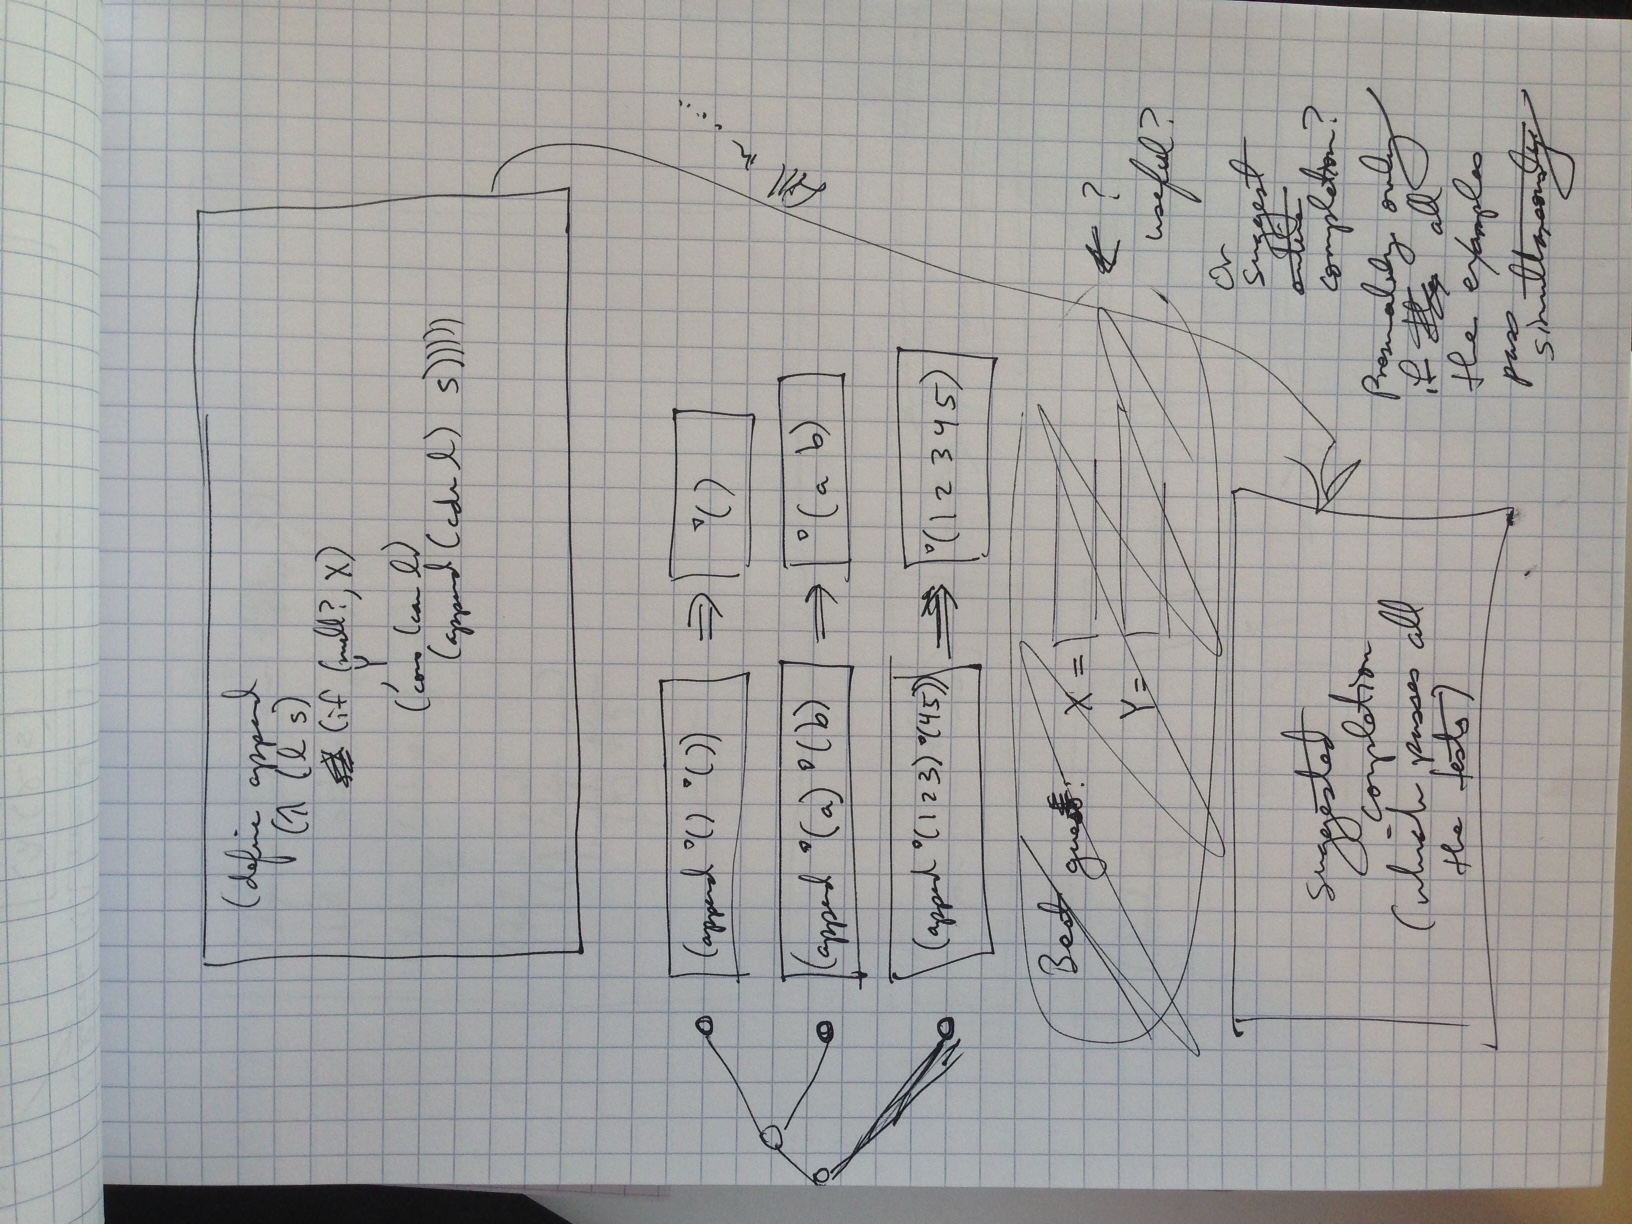 (define append
(λ (l s)
(if (null? ,X)
,Y
(cons (car l)
(append (cdr l) s)))))
(append '() '()) ⇒ '()
(append '(a) '(b) ⇒ '(a b)
(append '(1 2 3) '(4 5)) ⇒ '(1 2 3 4 5)
fill in ....
Best guess:
X =
Y =
← ?
useful?
Or
suggest
entire
completion?
Presumably only
if all
the examples
pass
simultaneously
suggested
completion
(which passes all
the tests)